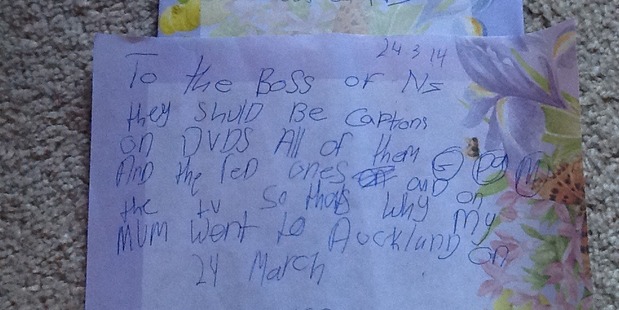 24.3.14
To the Boss of NZ
they shuld Be Captions
on DVDS All of them G PG M
And the red ones and on
the tv So thats Why My
MUM Went to Auckland on
24 March